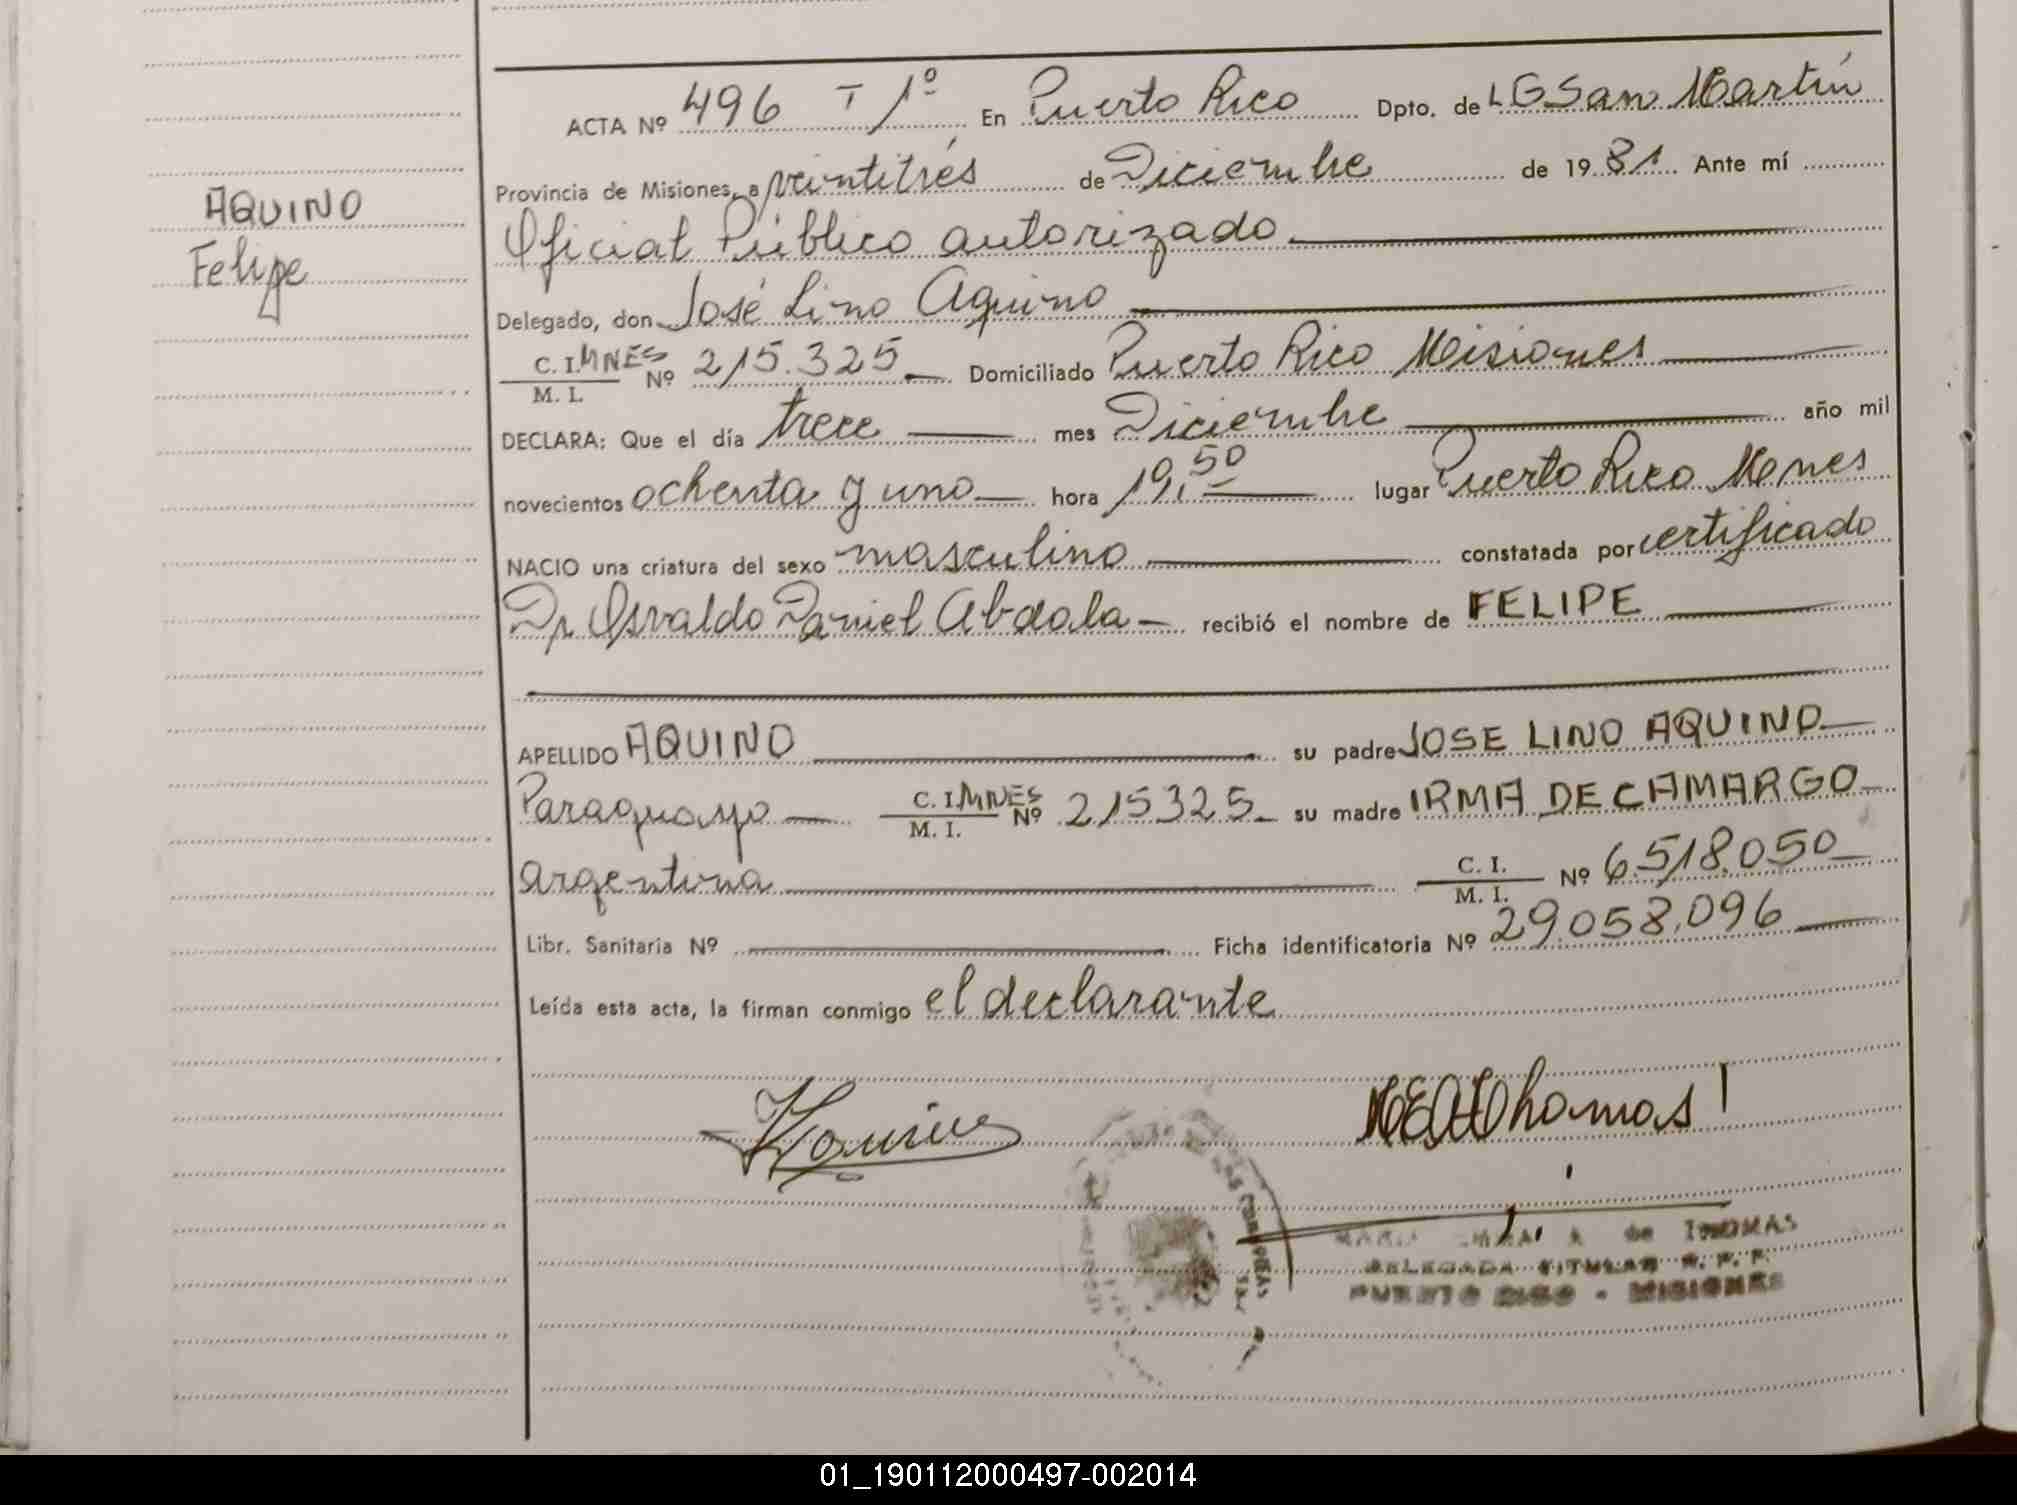 ACTA Nº 496 T 1º En Puerto Rico Dpto. de LG San Martín
Provincia de Misiones, a veintitrés de Diciembre de 1981 Ante mí
Oficial Público autorizado
Delegado, don José Lino Aquino
C. I. MNES
M. I. Nº 215.325 Domiciliado Puerto Rico Misiones
DECLARA: Que el día trece mes Diciembre año mil
novecientos ochenta y uno hora 19,50 lugar Puerto Rico Mnes
NACIO una criatura del sexo masculino constatada por certificado
Dr Osvaldo Daniel Abdala recibió el nombre de FELIPE
APELLIDO AQUINO su padre JOSE LINO AQUINO
Paraguayo C. I. MNES
M. I. Nº 215325 su madre IRMA DE CAMARGO
argentina C. I.
M. I. Nº 6.518.050
Libr. Sanitaria Nº Ficha identificatoria Nº 29.058.096
Leída esta acta, la firman conmigo el declarante
AQUINO
Felipe
A. de THOMAS
DELEGADA TITULAR R. P. P.
PUERTO RICO - MISIONES
01_190112000497-002014